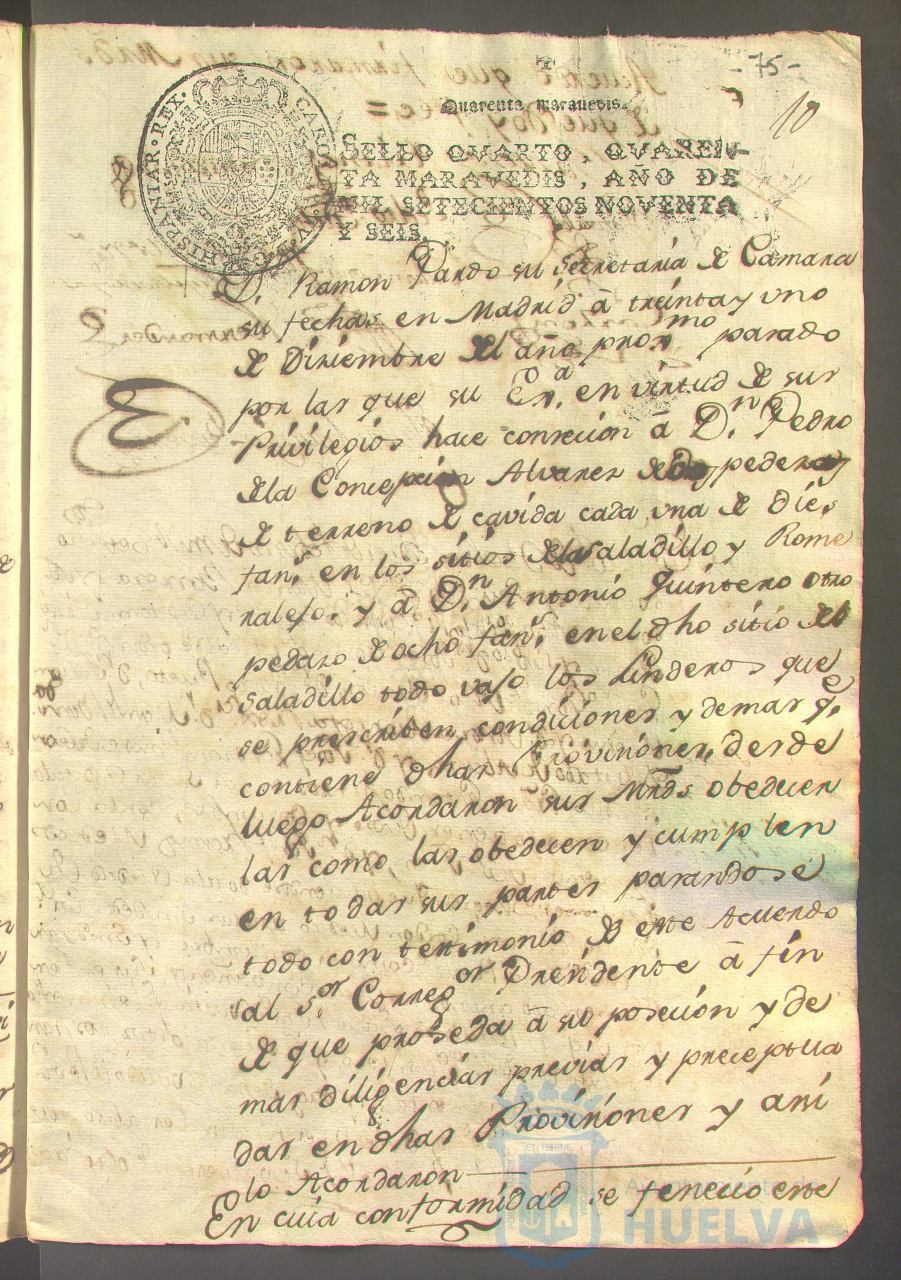 -75-
10
Quarenta maravedis.
SELLO QVARTO, QVAREN-
TA MARAVEDIS, AÑO DE
MIL SETECIENTOS NOVENTA
Y SEIS.
HISPANIAR·REX·CAROLVS·IV·D·G·
D. Ramon Pardo su Secretaria de Camara
su fechas en Madrid â treinta y uno
de Diziembre del año proxmo pasado
por las que su Exa. en virtud de sus
Privilegios hace consecion â Dn. Pedro
de la Concepcion Alvares de pedasos
de terreno de cavida cada una de Dies
fans. en los sitios del Saladillo y Rome
ralejo, y â Dn. Antonio Quintero otro
pedazo de ocho fans. en el dho sitio del
Saladillo todo vajo los Linderos que
se prescriben, condiciones y demas qe.
contiene dhas Provisiones, desde
luego Acordaron sus Mrds obedecer
las como las obedecen y cumplen
en todas sus partes pasandose
todo con testimonio de este Acuerdo
al Sor. Corregor Presidente â fin
de que proseda â su posecion y de
mas diligencias previas y preceptua
das en dhas Provisiones y asi
lo Acordaron
En cuia conformidad se fenecio este
Ayuntamiento de
HUELVA